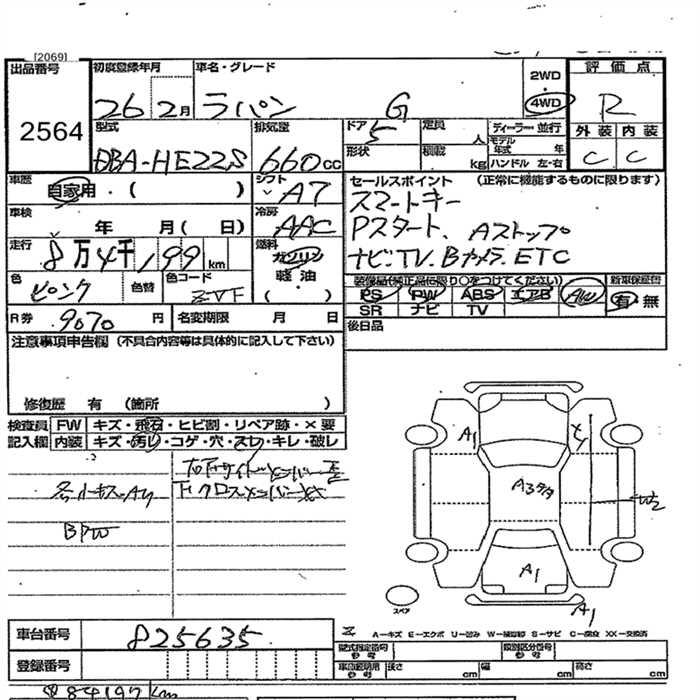 [2069]
出品番号 初度登録年月 車名・グレード 2WD 評価点
26 2月 ラパン G 4WD R
2564
型式 排気量 ドア 5 定員 人 ディーラー・並行 外装 内装
DBA-HE22S 660cc 形状 積載 kg モデル年式 年 ハンドル 左・右 C C
車歴 自家用・( ) シフト A7 セールスポイント (正常に機能するものに限ります)
スマートキー
車検 年 月( 日) 冷房 AAC Pスタート、Aストップ
走行 8万4千199km 燃料 ガソリン ナビ・TV.Bカメラ.ETC
軽油
色 ピンク 色替 色コード ZVF ( ) 装備品(純正品に限り○をつけてください) 新車保証書
PS PW ABS エアB AW 有・無
R券 9070円 名変期限 月 日 SR ナビ TV
後日品
注意事項申告欄 (不具合内容等は具体的に記入して下さい)
修復歴 有 (箇所 )
検査員 FW キズ・飛石・ヒビ割・リペア跡・×要
記入欄 内装 キズ・汚レ・コゲ・穴・スレ・キレ・破レ
BPW
A1
A3
W2
A1
A1
スペア
車台番号 825635
A-キズ E-エクボ U-凹み W-補修跡 S-サビ C-腐食 XX-交換済
登録番号
型式指定番号 類別区分番号
長さ cm 幅 cm 高さ cm
84197km